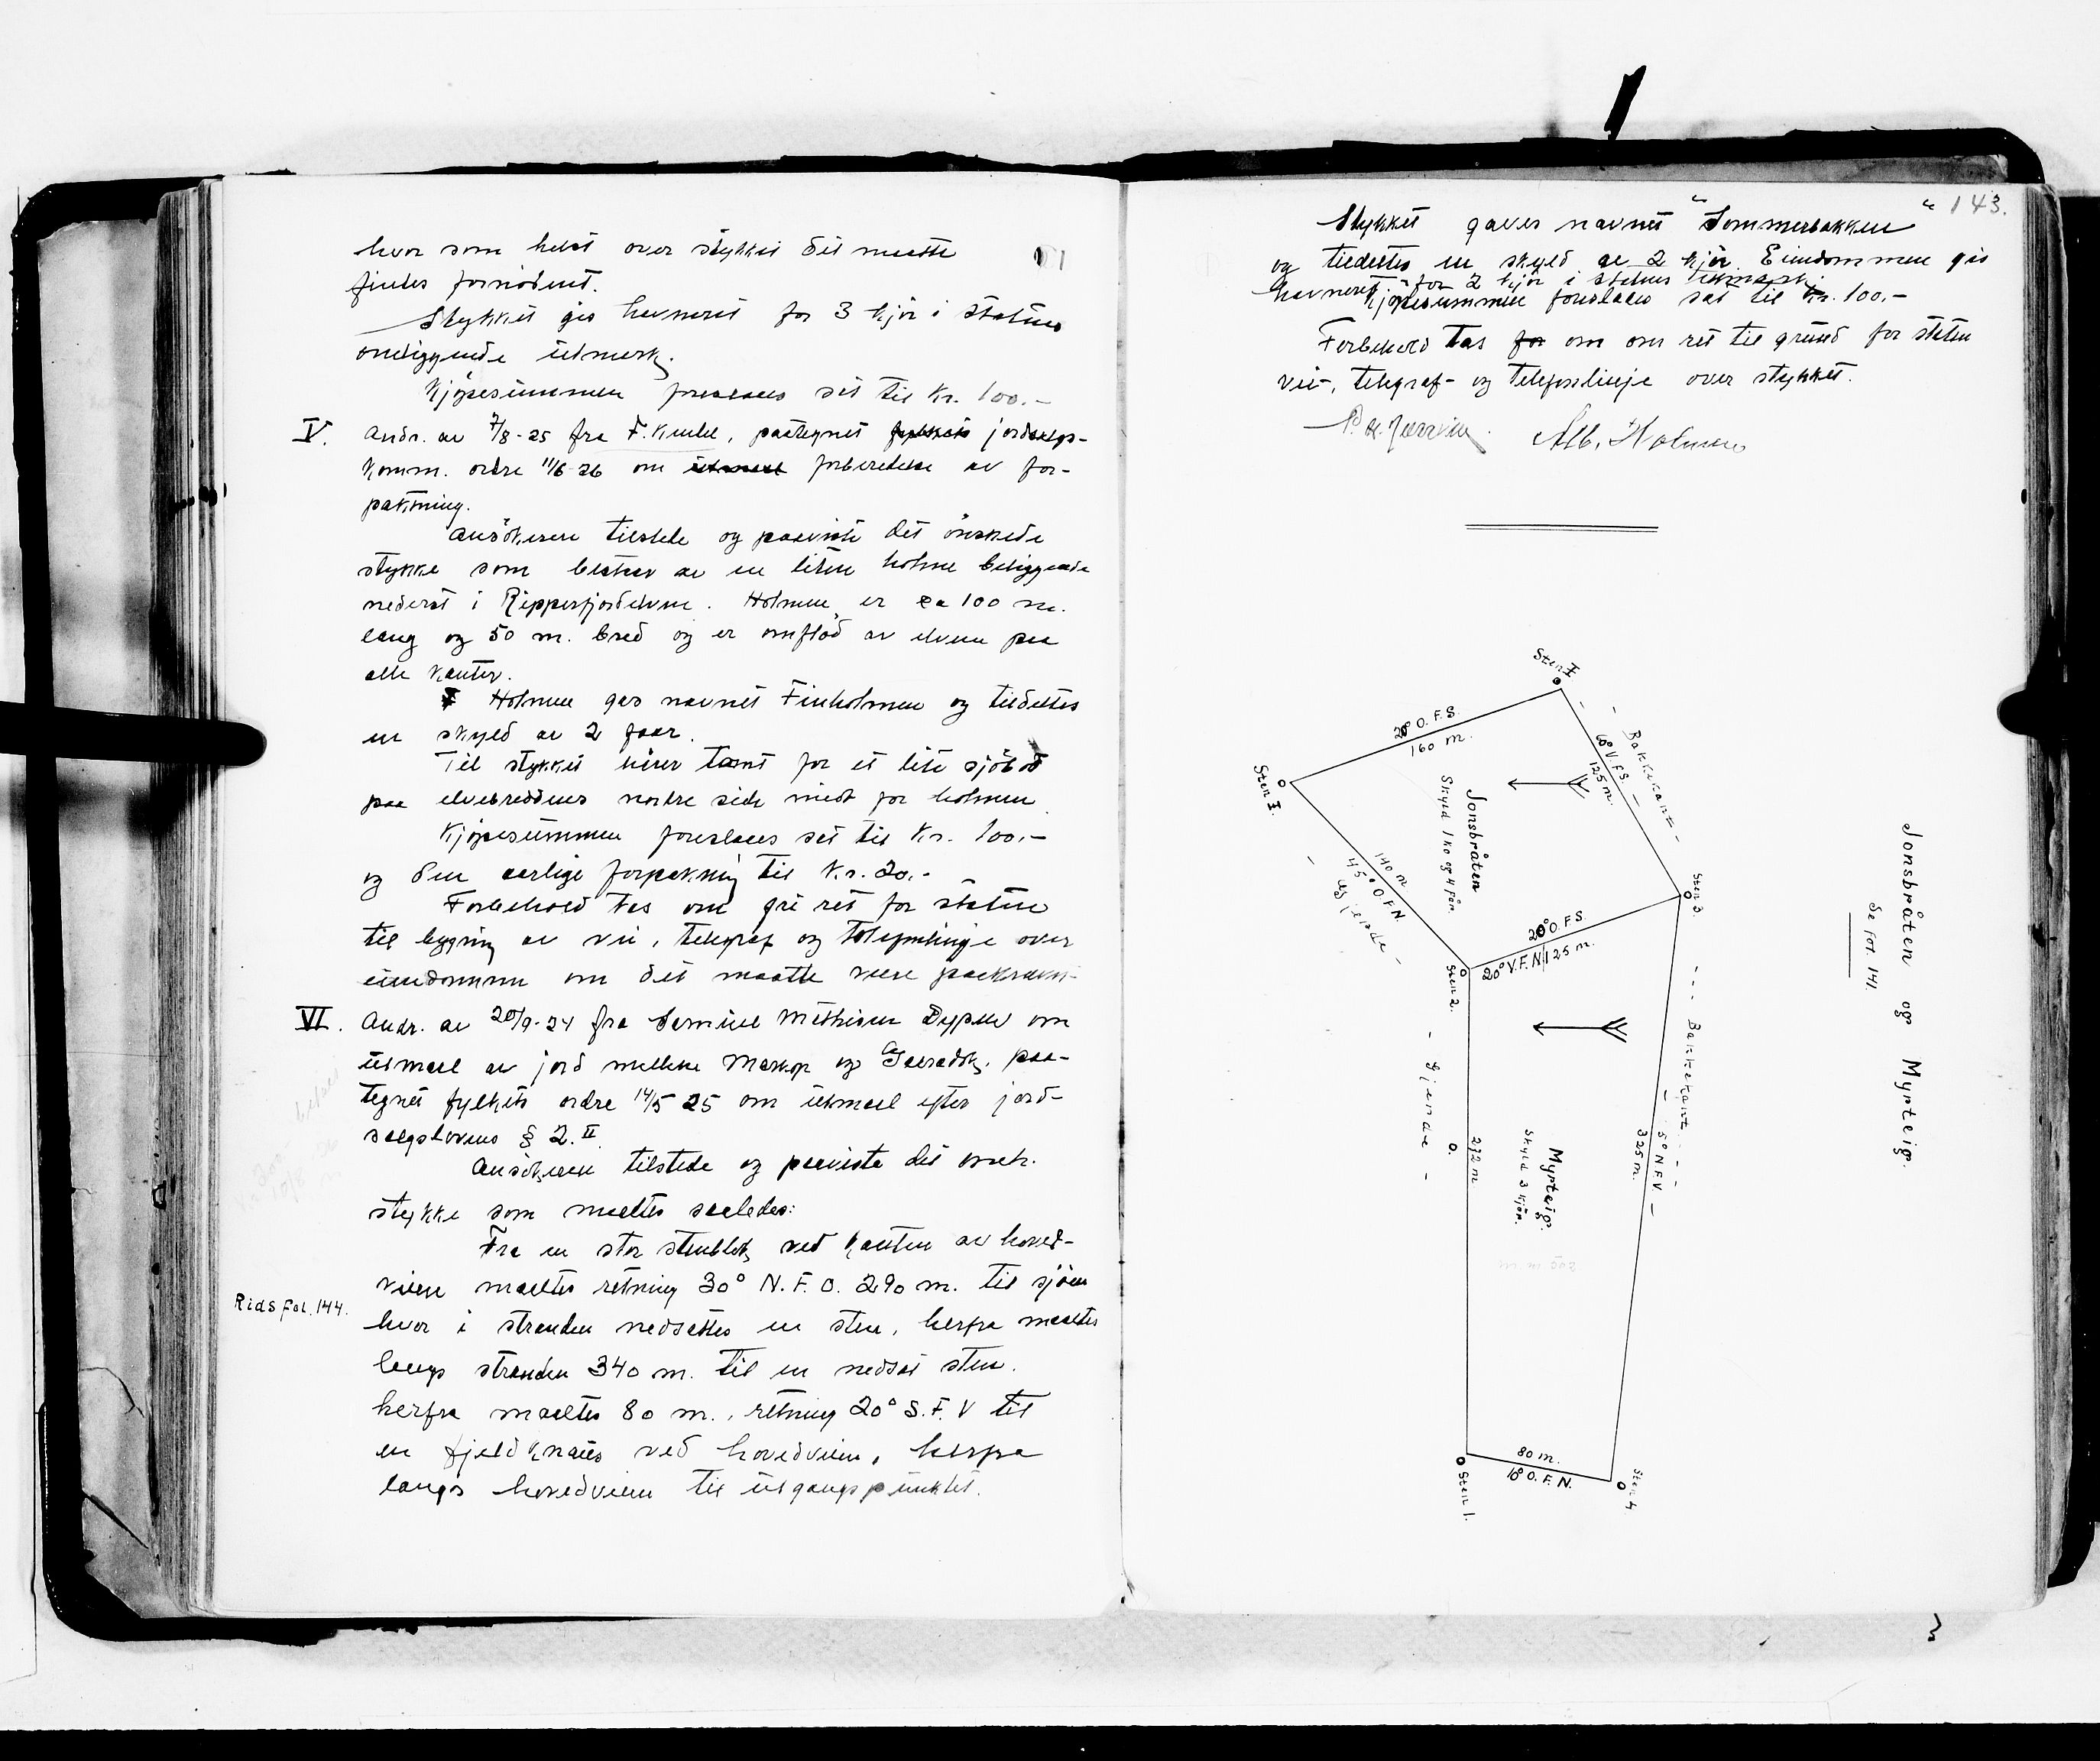 hvor som helst over stykket det maatte
findes fornødent.
Stykket gis havneret for 3 kjør i statens
omliggende utmark.
Kjøpesummen foreslaaes sat til Kr. 100.-
V. Andr. av 7/8-25 fra F. , paategnet jordsalgs-
komm. ordre 11/6-26 om forberedelse av for-
paktning.
Ansökeren tilstede og paaviste det önskede
stykke som bestaar av en liten holme beliggende
nederst i Ripperfjordelven. Holmen er ca 100 m.
lang og 50 m. bred og er omflöd av elven paa
alle kanter.
Holmen gaves navnet Finholmen og tildeltes
en skyld av 2 faar.
Til stykket hører tomt for et lite sjöbod
paa elvebreddens nordre side midt for holmen.
Kjøpesummen foreslaaes sat til Kr. 100.-
og den aarlige forpaktning til Kr. 20.-
Forbehold tas om fri ret for staten
til bygning av vei, telegraf og telefonlinje over
eiendommen om det maatte være paakrævet.
VI. Andr. av 20/9-24 fra Mathisen Dypen om
utmaal av jord mellem Markop og , paa-
tegnet fylkets ordre 14/5 25 om utmaal efter jord-
salgslovens § 2. II.
Ansökeren tilstede og paaviste det önsk.
stykke som maaltes saaledes:
Fra en stor stenblok ved kanten av hoved-
veien maaltes retning 30° N.F.O. 290 m. til sjöen
Rids Fol. 144.
hvor i stranden nedsattes en sten, herfra maaltes
langs stranden 340 m. til en nedsat sten.
herfra maaltes 80 m., retning 20° S.F.V til
en fjeldknaus ved hovedveien, herfra
langs hovedveien til utgangspunktet.
143.
Stykket gaves navnet "Sommerbakken"
og tildeltes en skyld av 2 kjör. Eiendommen gis
havneret for 2 kjör i statens utmark.
Kjøpesummen foreslaaes sat til Kr. 100.-
Forbehold tas for om om ret til grund for staten
vei-, telegraf- og telefonlinje over stykket.
Alb. Holmen
Jonsbråten og Myrteig.
Se Fol. 141.
Sten I
20° O.F.S.
160 m.
Bakkekant
V.F.S.
125 m.
Jonsbråten
Skyld 1 ko og 4 får.
140 m
45° O.F.N.
Gjerde
Sten 3.
20° O.F.S.
20° V.F.N. 125 m.
Sten 2.
Gjerde
272 m
Myrteig.
Skyld 3 kjör.
Bakkekant
5° N F V
325 m.
80 m.
10° O.F.N.
Sten 1.
Sten 4.